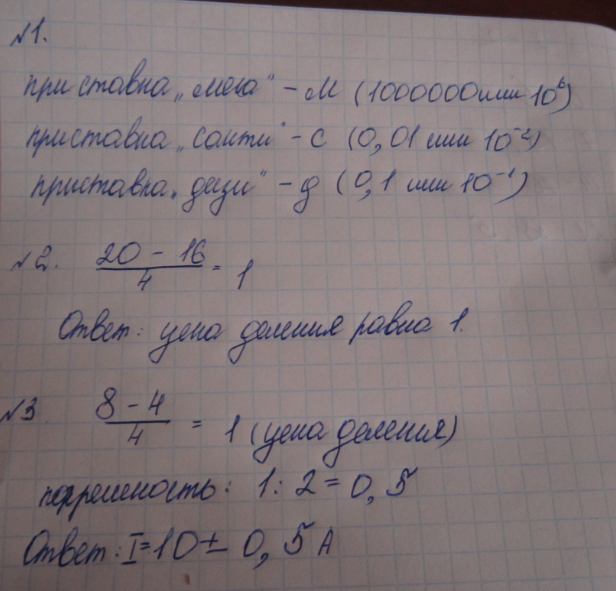 №1.
приставка „мега" – М (1000000 или 10⁶)
приставка „санти" – с (0,01 или 10⁻²)
приставка „деци" – д (0,1 или 10⁻¹)
№2. (20 – 16)/4 = 1
Ответ: цена деления равна 1.
№3 (8 – 4)/4 = 1 (цена деления)
погрешность: 1 : 2 = 0,5
Ответ: I = 10 ± 0,5 А